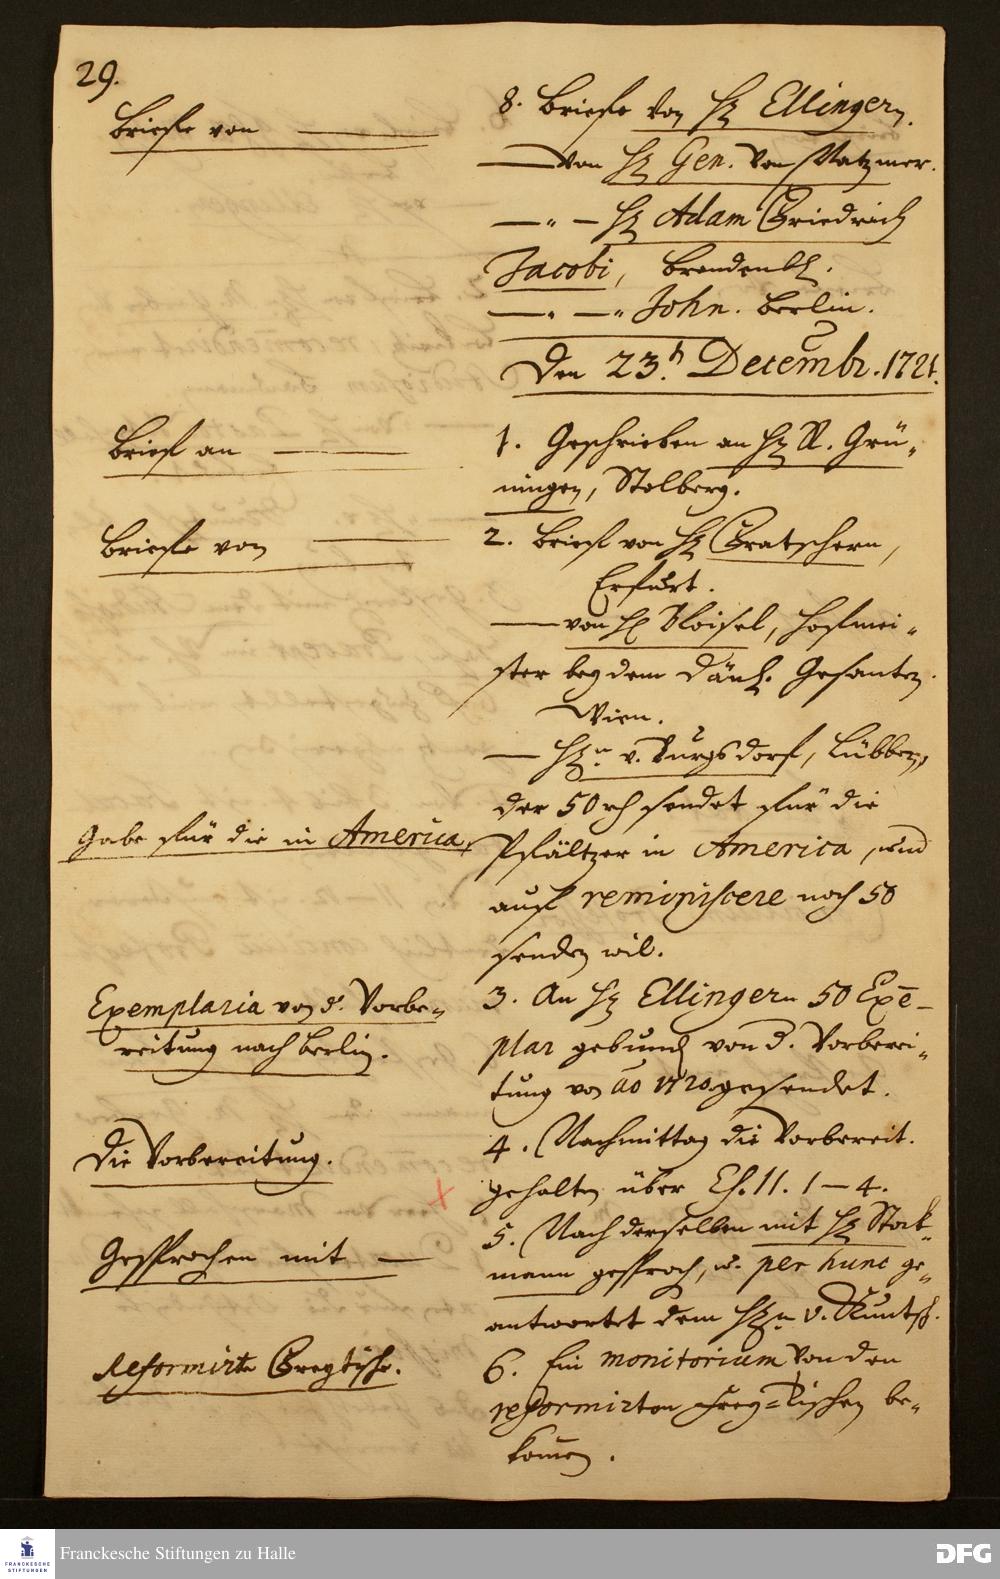 29.
Briefe von
8. Briefe von H. Ellingern.
— von H. Gen. von Natzmer.
— " — H. Adam Friedrich
Jacobi, Brandenb.
— " — " John. Berlin.
Den 23.t Decembr. 1721.
Brief an
1. Geschrieben an H. R. Grü-
ningen, Stolberg.
Briefe von
2. Brief von H. Gratschern,
Erfurt.
— von H. Bloisel, Hofmei-
ster bey dem Dänh. Gesanten
Wien.
— H.n v. Burgsdorf, Lübben,
der 50 rh sendet für die
Gabe für die in America
Pfältzer in America, und
auf reminiscere noch 50
senden wil.
Exemplaria von d. Vorbe-
reitung nach Berlin.
3. An H. Ellingern 50 Exē-
plar gebund von d. Vorberei-
tung von ao 1720. gesendet.
Die Vorbereitung.
4. Nachmittag die Vorbereit.
gehalten über Es. 11. 1–4.
Gesprochen mit —
5. Nach derselben mit H. Stock-
mann gesproch, u. per hunc ge-
antwortet dem H.n v. Kuntsch.
Reformirte Freytische.
6. Ein monitorium von den
reformirten Frey-Tischen be-
komen.
Franckesche Stiftungen zu Halle
FRANCKESCHE
STIFTUNGEN
DFG